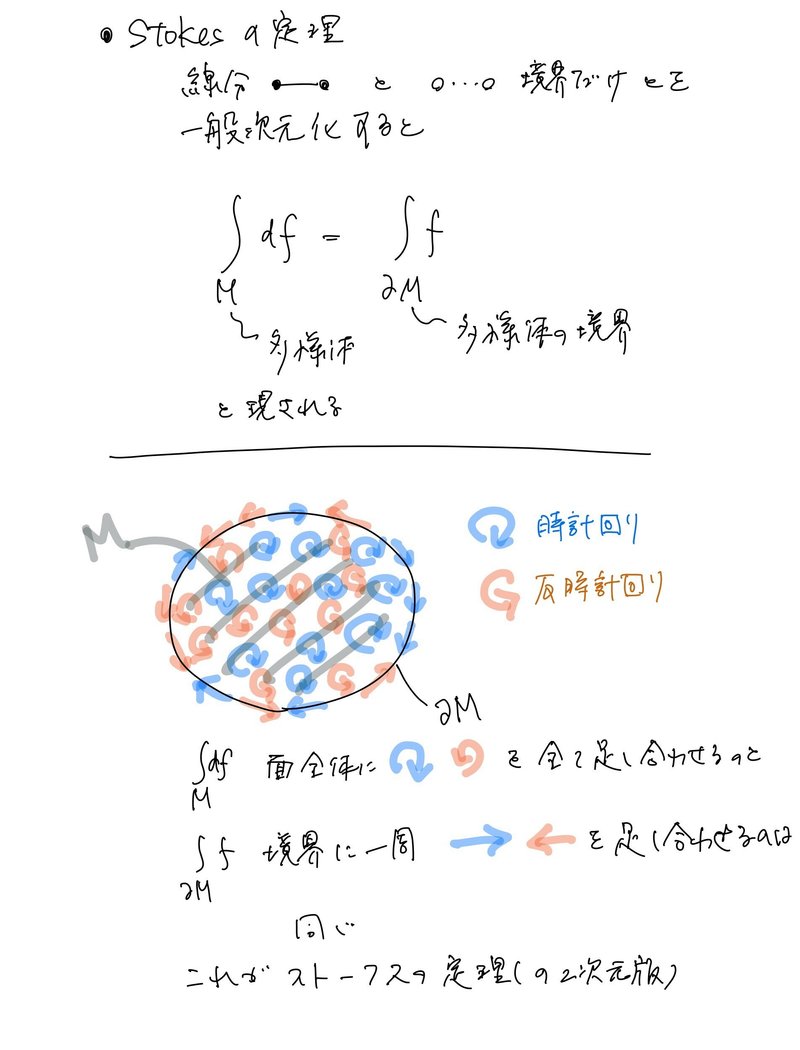 • Stokesの定理
線分 と 境界だけ とを
一般次元化すると
∫ df = ∫ f
M ∂M
多様体 多様体の境界
と現される
M
時計回り
反時計回り
∂M
∫df 面全体に を全て足し合わせるのと
M
∫f 境界に一周 を足し合わせるのは
∂M
同じ
これが ストークスの定理(の2次元版)